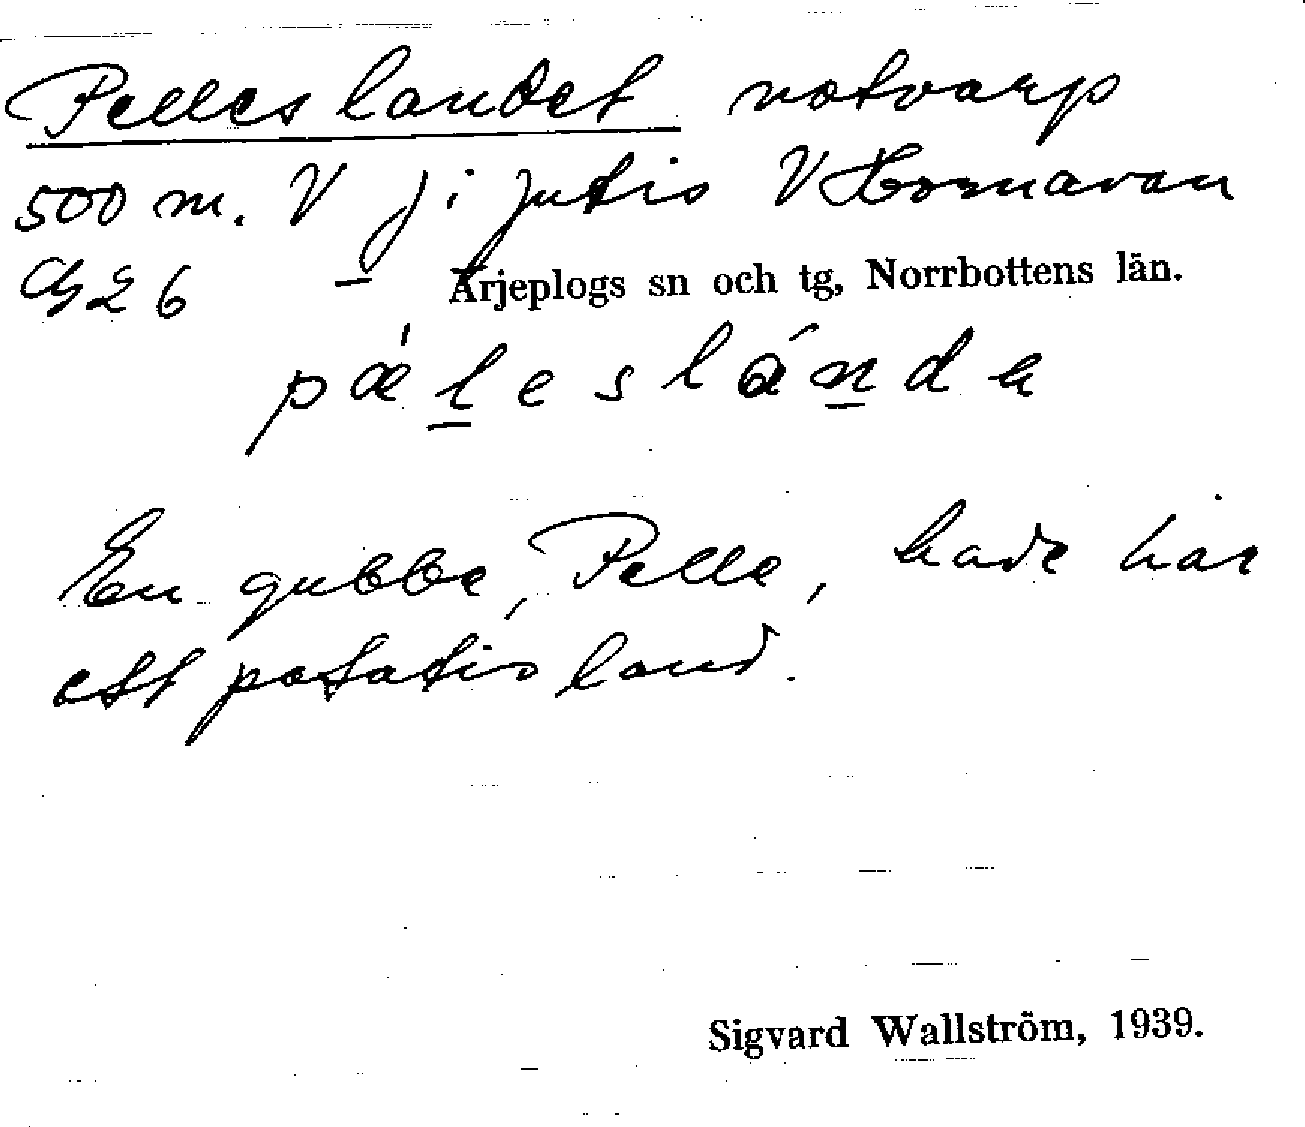 Pelleslandet notvarp
500 m. V j i Jutis V Hornavan
G 2 6 Arjeplogs sn och tg, Norrbottens län.
pǽleslánda
En gubbe, Pelle, hade här
ett potatisland.
Sigvard Wallström, 1939.